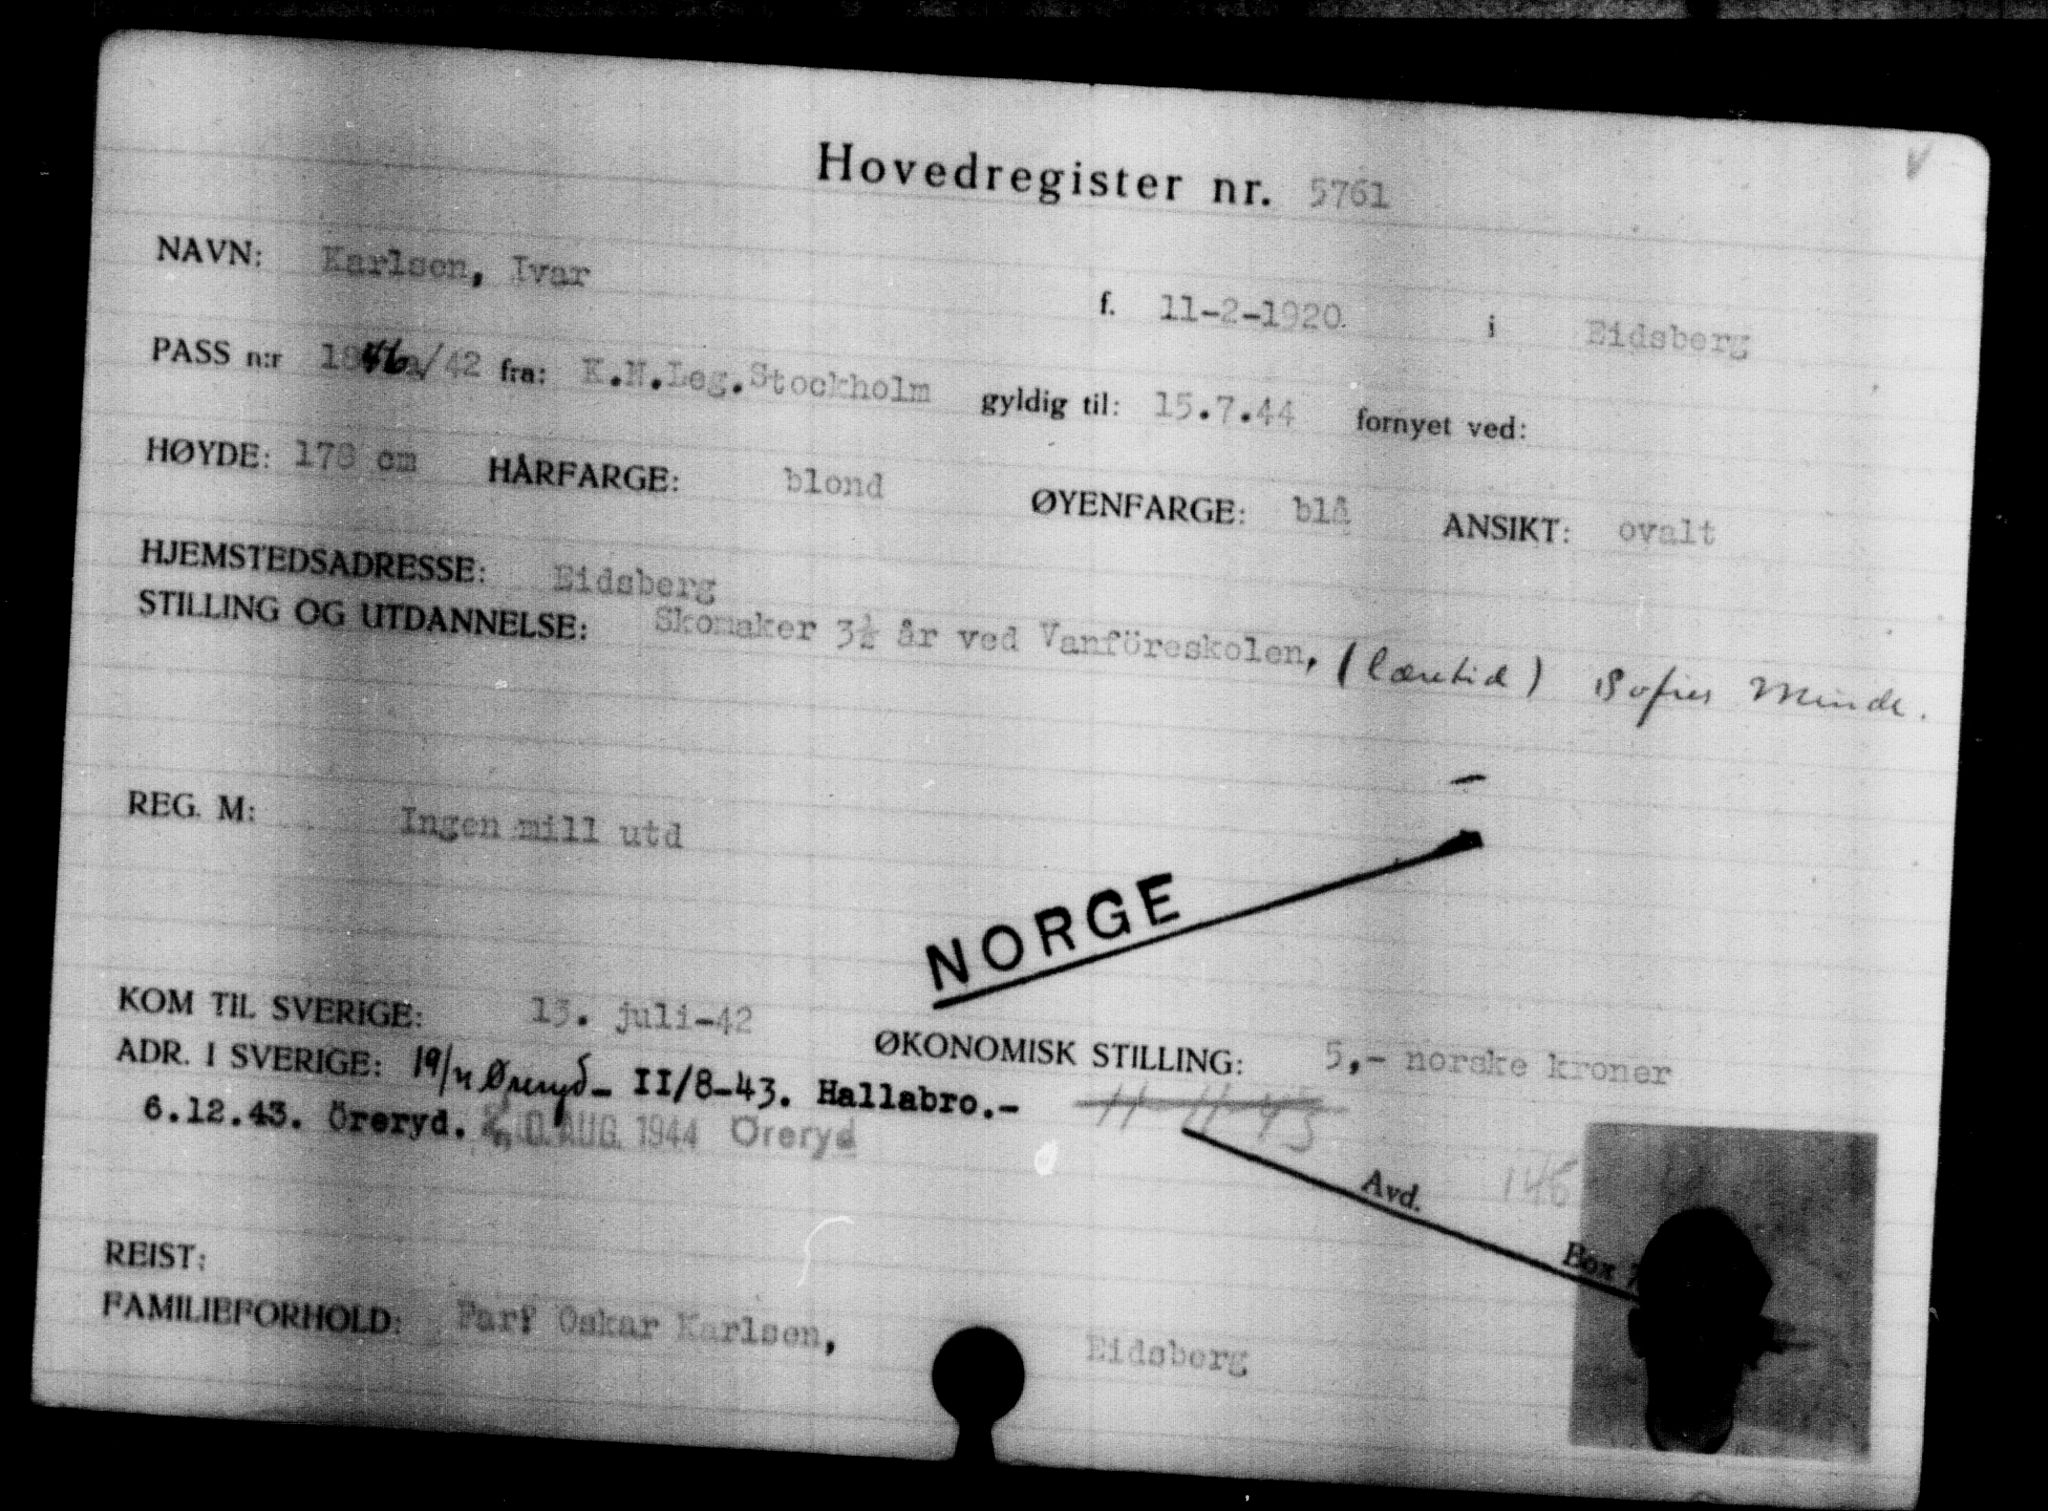 Hovedregister nr. 5761
NAVN: Karlsen, Ivar
f. 11-2-1920. i Eidsberg
PASS n:r 1846a/42 fra: K.N.Leg.Stockholm gyldig til: 15.7.44 fornyet ved:
HØYDE: 178 cm HÅRFARGE: blond ØYENFARGE: blå ANSIKT: ovalt
HJEMSTEDSADRESSE: Eidsberg
STILLING OG UTDANNELSE: Skomaker 3½ år ved Vanföreskolen, (læretid) Sofies Minde.
REG. M: Ingen mill utd
NORGE
KOM TIL SVERIGE: 13. juli-42
ØKONOMISK STILLING: 5,- norske kroner
ADR. I SVERIGE: Øreryd - II/8-43. Hallabro.- 11-11-43
6.12.43. Öreryd. AUG. 1944 Öreryd
Avd. 146
Box
REIST:
FAMILIEFORHOLD: Farf Oskar Karlsen, Eidsberg